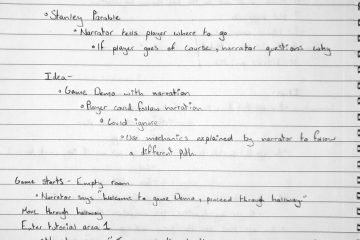 • Stanley Parable
• Narrator tells player where to go
• If player goes of course, narrator questions why
Idea-
• Game Demo with narration
• Player could follow narration
• Could ignore
• Use mechanics explained by narrator to follow
a different path
Game starts - Empty room
• Narrator says "Welcome to game Demo, proceed through hallway"
Move through hallway
Enter tutorial area 1